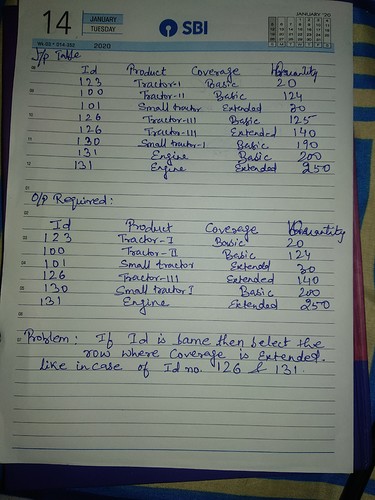 14
JANUARY
TUESDAY
SBI
JANUARY '20
2020
I/p Table
Id Product Coverage Quantity
123 Tractor-I Basic 20
100 Tractor-II Basic 124
101 Small tractor Extended 30
126 Tractor-III Basic 125
126 Tractor-III Extended 140
130 Small tractor-I Basic 190
131 Engine Basic 200
131 Engine Extended 250
O/p Required:
Id Product Coverage Quantity
123 Tractor-I Basic 20
100 Tractor-II Basic 124
101 Small tractor Extended 30
126 Tractor-III Extended 140
130 Small tractor I Basic 200
131 Engine Extended 250
Problem: If Id is same then select the
row where Coverage is Extended.
like in case of Id no. 126 & 131.